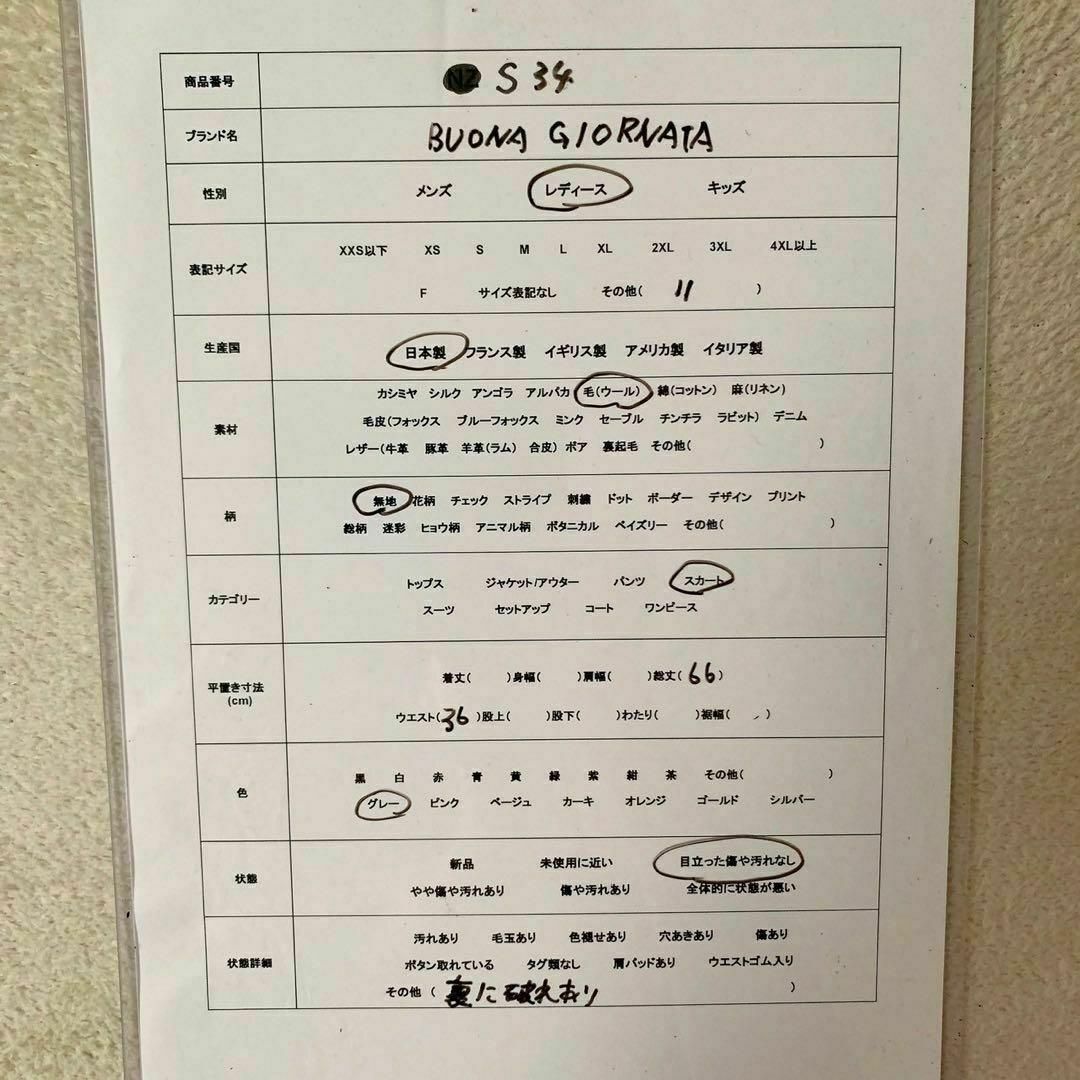 商品番号 S 34
ブランド名 BUONA GIORNATA
性別 メンズ レディース キッズ
XXS以下 XS S M L XL 2XL 3XL 4XL以上
表記サイズ
F サイズ表記なし その他( 11 )
生産国 日本製 フランス製 イギリス製 アメリカ製 イタリア製
カシミヤ シルク アンゴラ アルパカ 毛(ウール) 綿(コットン) 麻(リネン)
素材 毛皮(フォックス ブルーフォックス ミンク セーブル チンチラ ラビット) デニム
レザー(牛革 豚革 羊革(ラム) 合皮) ボア 裏起毛 その他( )
柄 無地 花柄 チェック ストライプ 刺繍 ドット ボーダー デザイン プリント
総柄 迷彩 ヒョウ柄 アニマル柄 ボタニカル ペイズリー その他( )
トップス ジャケット/アウター パンツ スカート
カテゴリー
スーツ セットアップ コート ワンピース
着丈( )身幅( )肩幅( )総丈( 66 )
平置き寸法
(cm)
ウエスト( 36 )股上( )股下( )わたり( )裾幅( )
黒 白 赤 青 黄 緑 紫 紺 茶 その他( )
色
グレー ピンク ベージュ カーキ オレンジ ゴールド シルバー
新品 未使用に近い 目立った傷や汚れなし
状態
やや傷や汚れあり 傷や汚れあり 全体的に状態が悪い
汚れあり 毛玉あり 色褪せあり 穴あきあり 傷あり
状態詳細 ボタン取れている タグ類なし 肩パッドあり ウエストゴム入り
その他 ( 裏に破れあり )